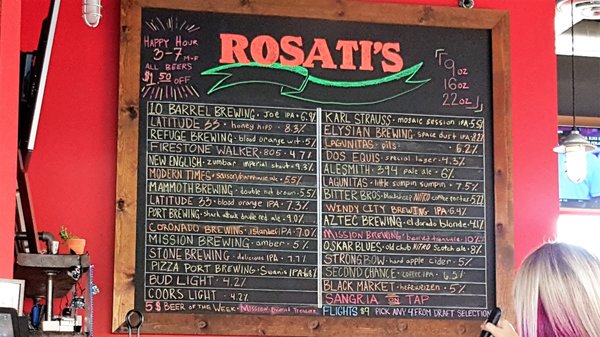 HAPPY HOUR
3-7 M-F
ALL BEERS
$1.50 OFF
ROSATI'S
9oz
16oz
22oz
10 BARREL BREWING · Joe IPA · 6.9
LATITUDE 33 · honey hips · 8.5%
REFUGE BREWING · blood orange wit · 5%
FIRESTONE WALKER · 805 · 4.7%
NEW ENGLISH · zumbar imperial stout · 9.3%
MODERN TIMES · saison/farmhouse ale · 5.5%
MAMMOTH BREWING · double nut brown · 5.5%
LATITUDE 33 · blood orange IPA · 7.3%
PORT BREWING · shark attack double red ale · 9.0%
CORONADO BREWING · islander IPA · 7.0%
MISSION BREWING · amber · 5%
STONE BREWING · delicious IPA · 7.7%
PIZZA PORT BREWING · Swamis IPA · 6.8%
BUD LIGHT · 4.2%
COORS LIGHT · 4.2%
KARL STRAUSS · mosaic session IPA · 5.5
ELYSIAN BREWING · space dust IPA · 8.2%
LAGUNITAS · pils · 6.2%
DOS EQUIS · special lager · 4.3%
ALESMITH · 394 pale ale · 6%
LAGUNITAS · little sumpin sumpin · 7.5%
BITTER BROS · NITRO coffee porter
WINDY CITY BREWING · IPA 6.4%
AZTEC BREWING · el dorado blonde · 4.8%
MISSION BREWING · 10%
OSKAR BLUES · old chub NITRO Scotch ale · 8%
STRONGBOW · hard apple cider · 5%
SECOND CHANCE · coffee IPA · 6.5%
BLACK MARKET · hefeweizen · 5%
SANGRIA ON TAP
5$ BEER OF THE WEEK · Mission
FLIGHTS $9 PICK ANY 4 FROM DRAFT SELECTION